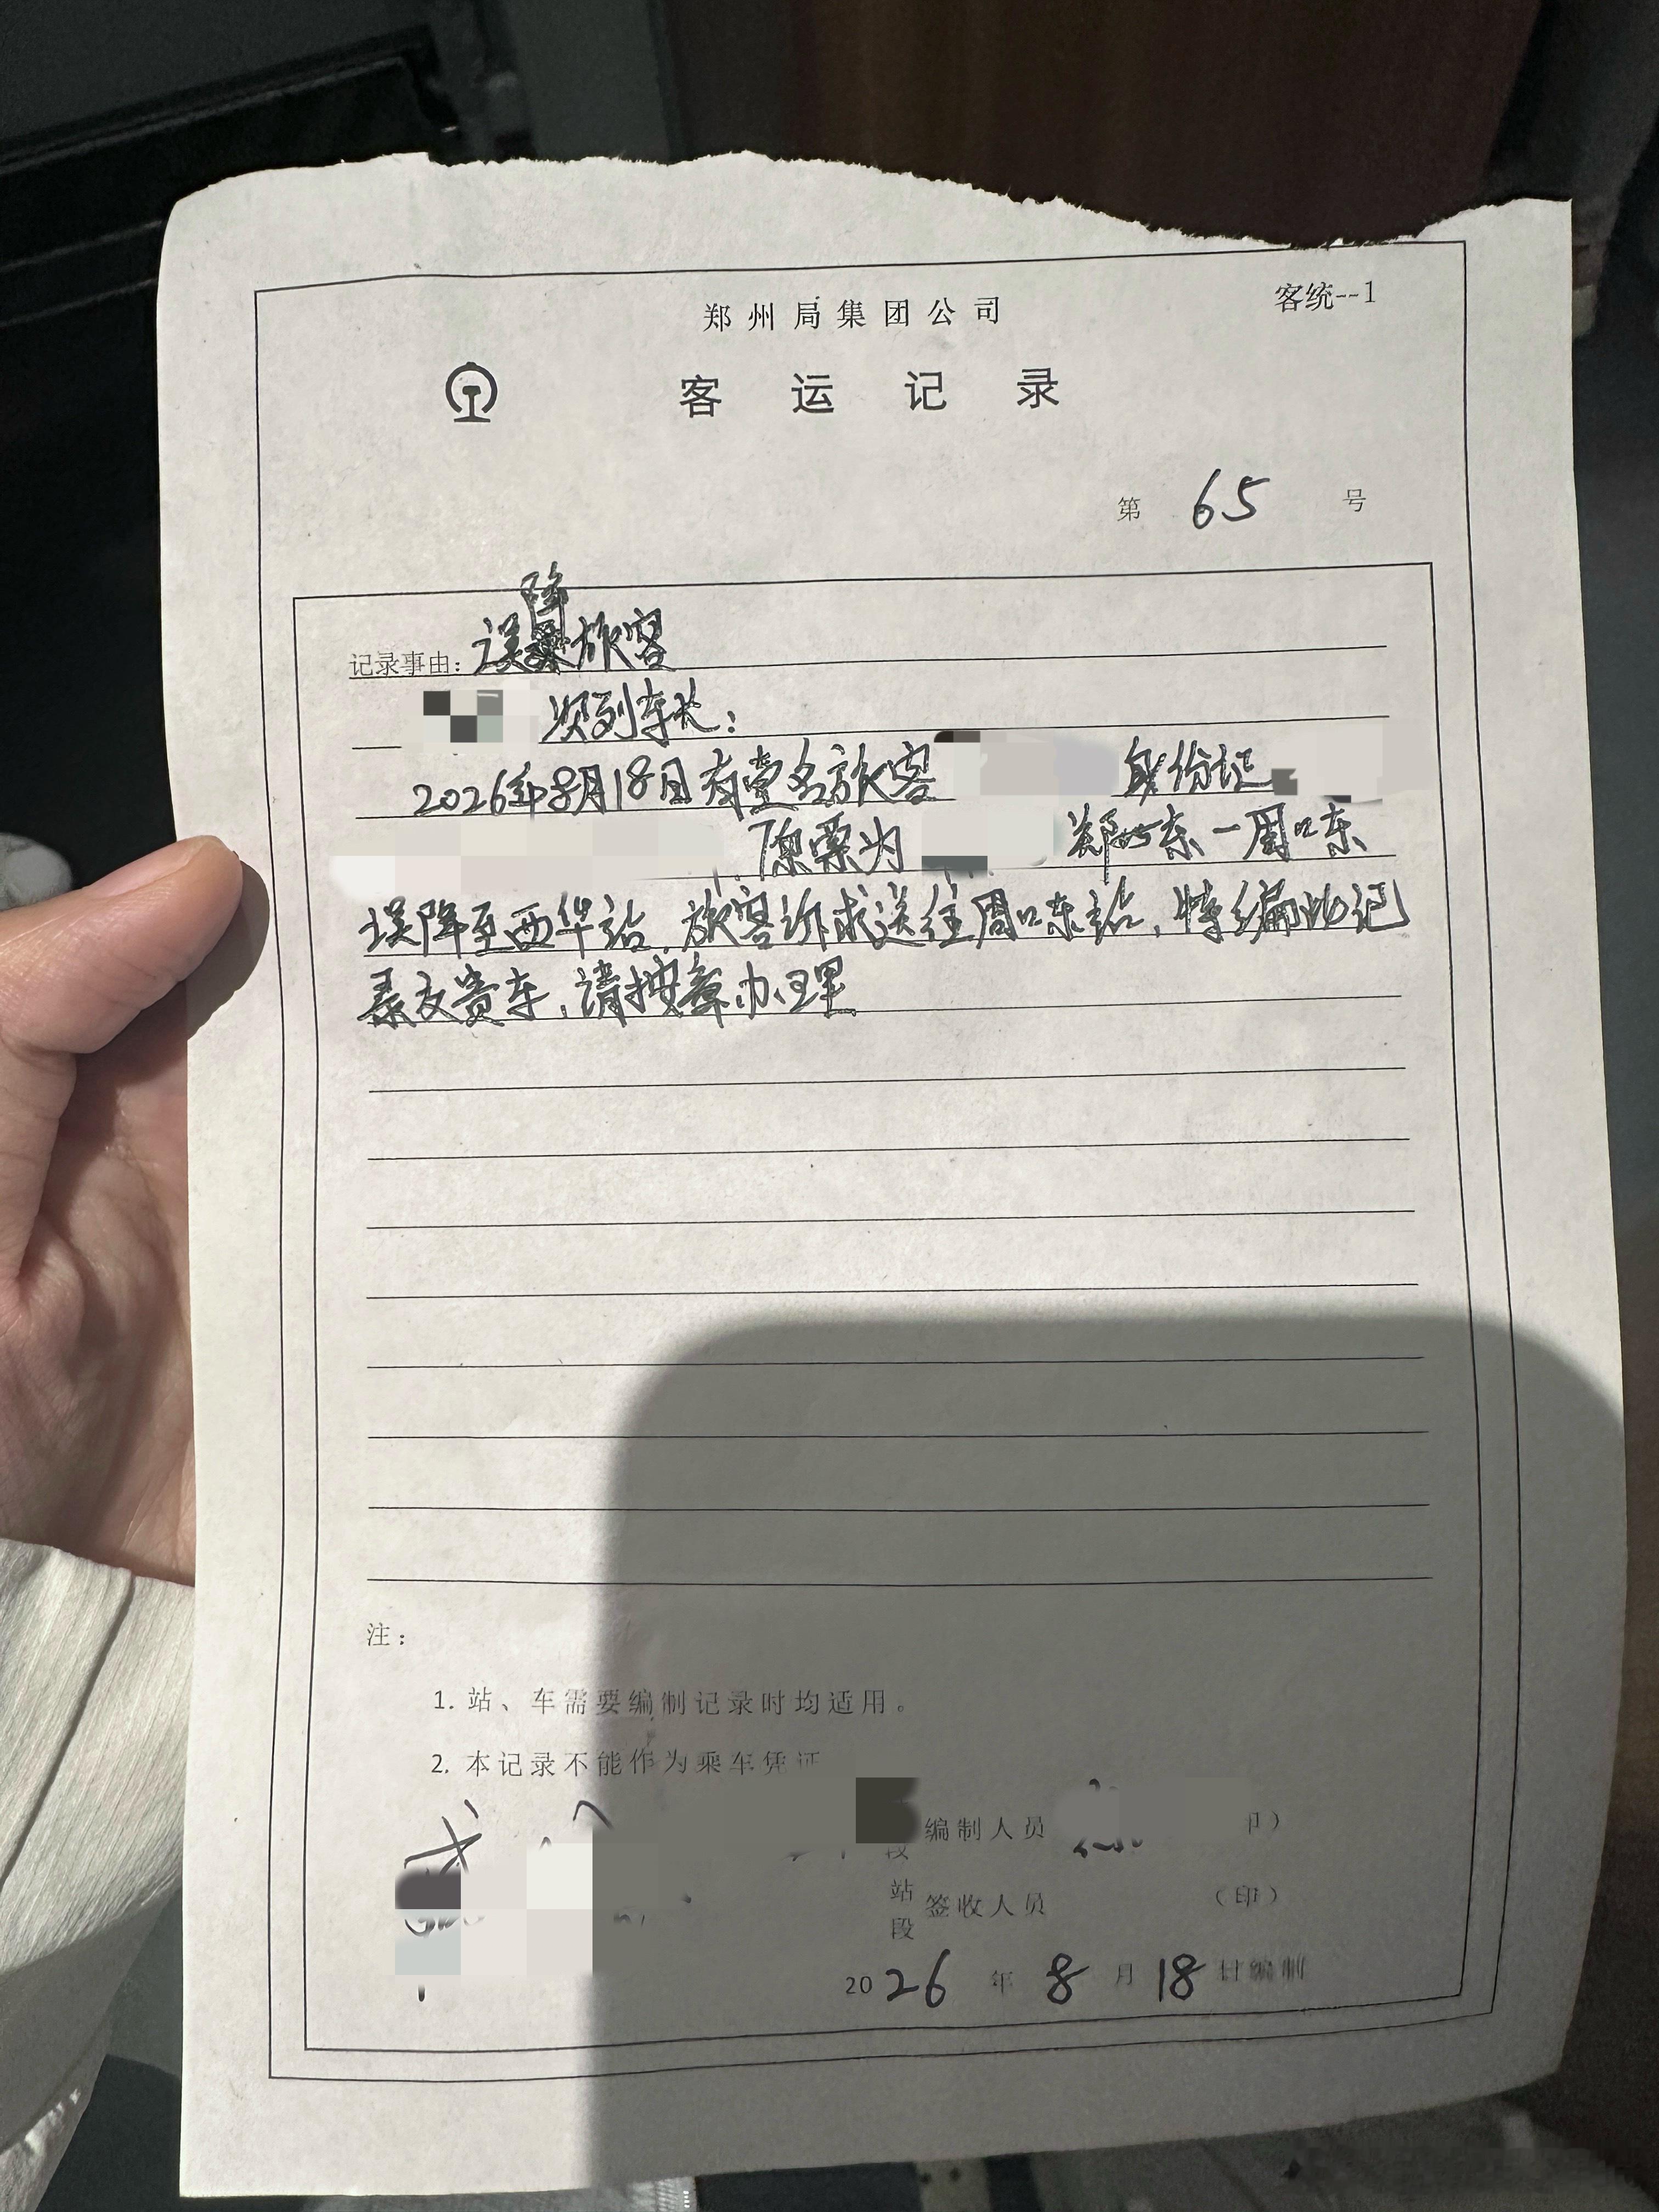 郑州局集团公司
客统--1
客运记录
第 65 号
降
记录事由：误乘旅客
次列车长：
2026年8月18日有壹名旅客 身份证
原票为 郑州东—周口东
误降至西华站，旅客诉求送往周口东站，特编此记
录交贵车，请按章办理。
注：
1. 站、车需要编制记录时均适用。
2. 本记录不能作为乘车凭证
段 编制人员 印）
站
段 签收人员 （印）
2026 年 8 月 18 日编制